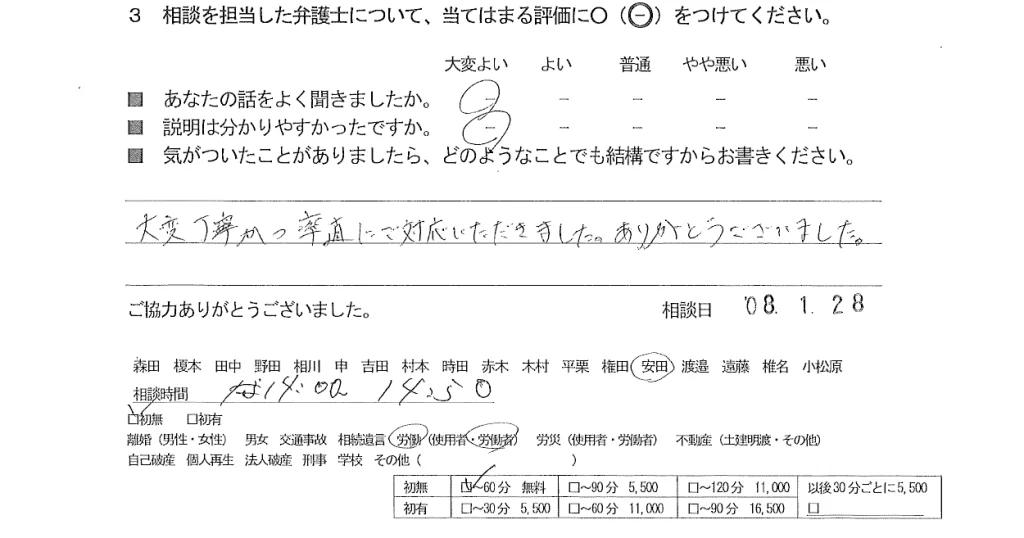 3 相談を担当した弁護士について、当てはまる評価に〇（㊀）をつけてください。
大変よい よい 普通 やや悪い 悪い
■ あなたの話をよく聞きましたか。 － － － － －
■ 説明は分かりやすかったですか。 － － － － －
■ 気がついたことがありましたら、どのようなことでも結構ですからお書きください。
大変丁寧かつ率直にご対応いただきました。ありがとうございました。
ご協力ありがとうございました。 相談日 '08. 1. 28
森田 榎本 田中 野田 相川 申 吉田 村本 時田 赤木 木村 平栗 権田 安田 渡邉 遠藤 椎名 小松原
相談時間 14:00 14:50
□初無 □初有
離婚（男性・女性） 男女 交通事故 相続遺言 労働（使用者・労働者） 労災（使用者・労働者） 不動産（土建明渡・その他）
自己破産 個人再生 法人破産 刑事 学校 その他（ ）
初無 □～60分 無料 □～90分 5,500 □～120分 11,000 以後30分ごとに5,500
初有 □～30分 5,500 □～60分 11,000 □～90分 16,500 □